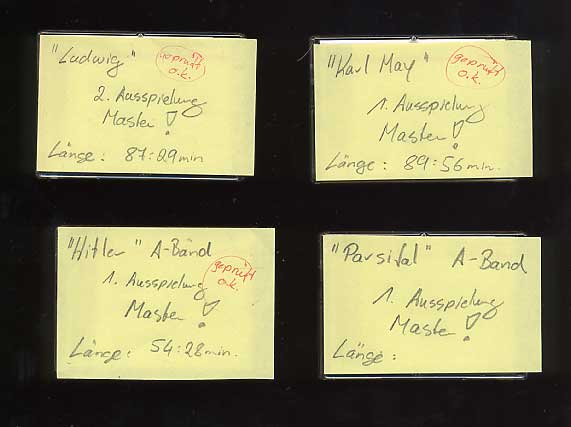 "Ludwig"
geprüft
o.k.
2. Ausspielung
Master!
Länge: 87:29 min
"Karl May"
geprüft
o.k.
1. Ausspielung
Master!
Länge: 89:56 min.
"Hitler" A-Band
geprüft
o.k.
1. Ausspielung
Master!
Länge: 54:28 min.
"Parsifal" A-Band
1. Ausspielung
Master!
Länge: